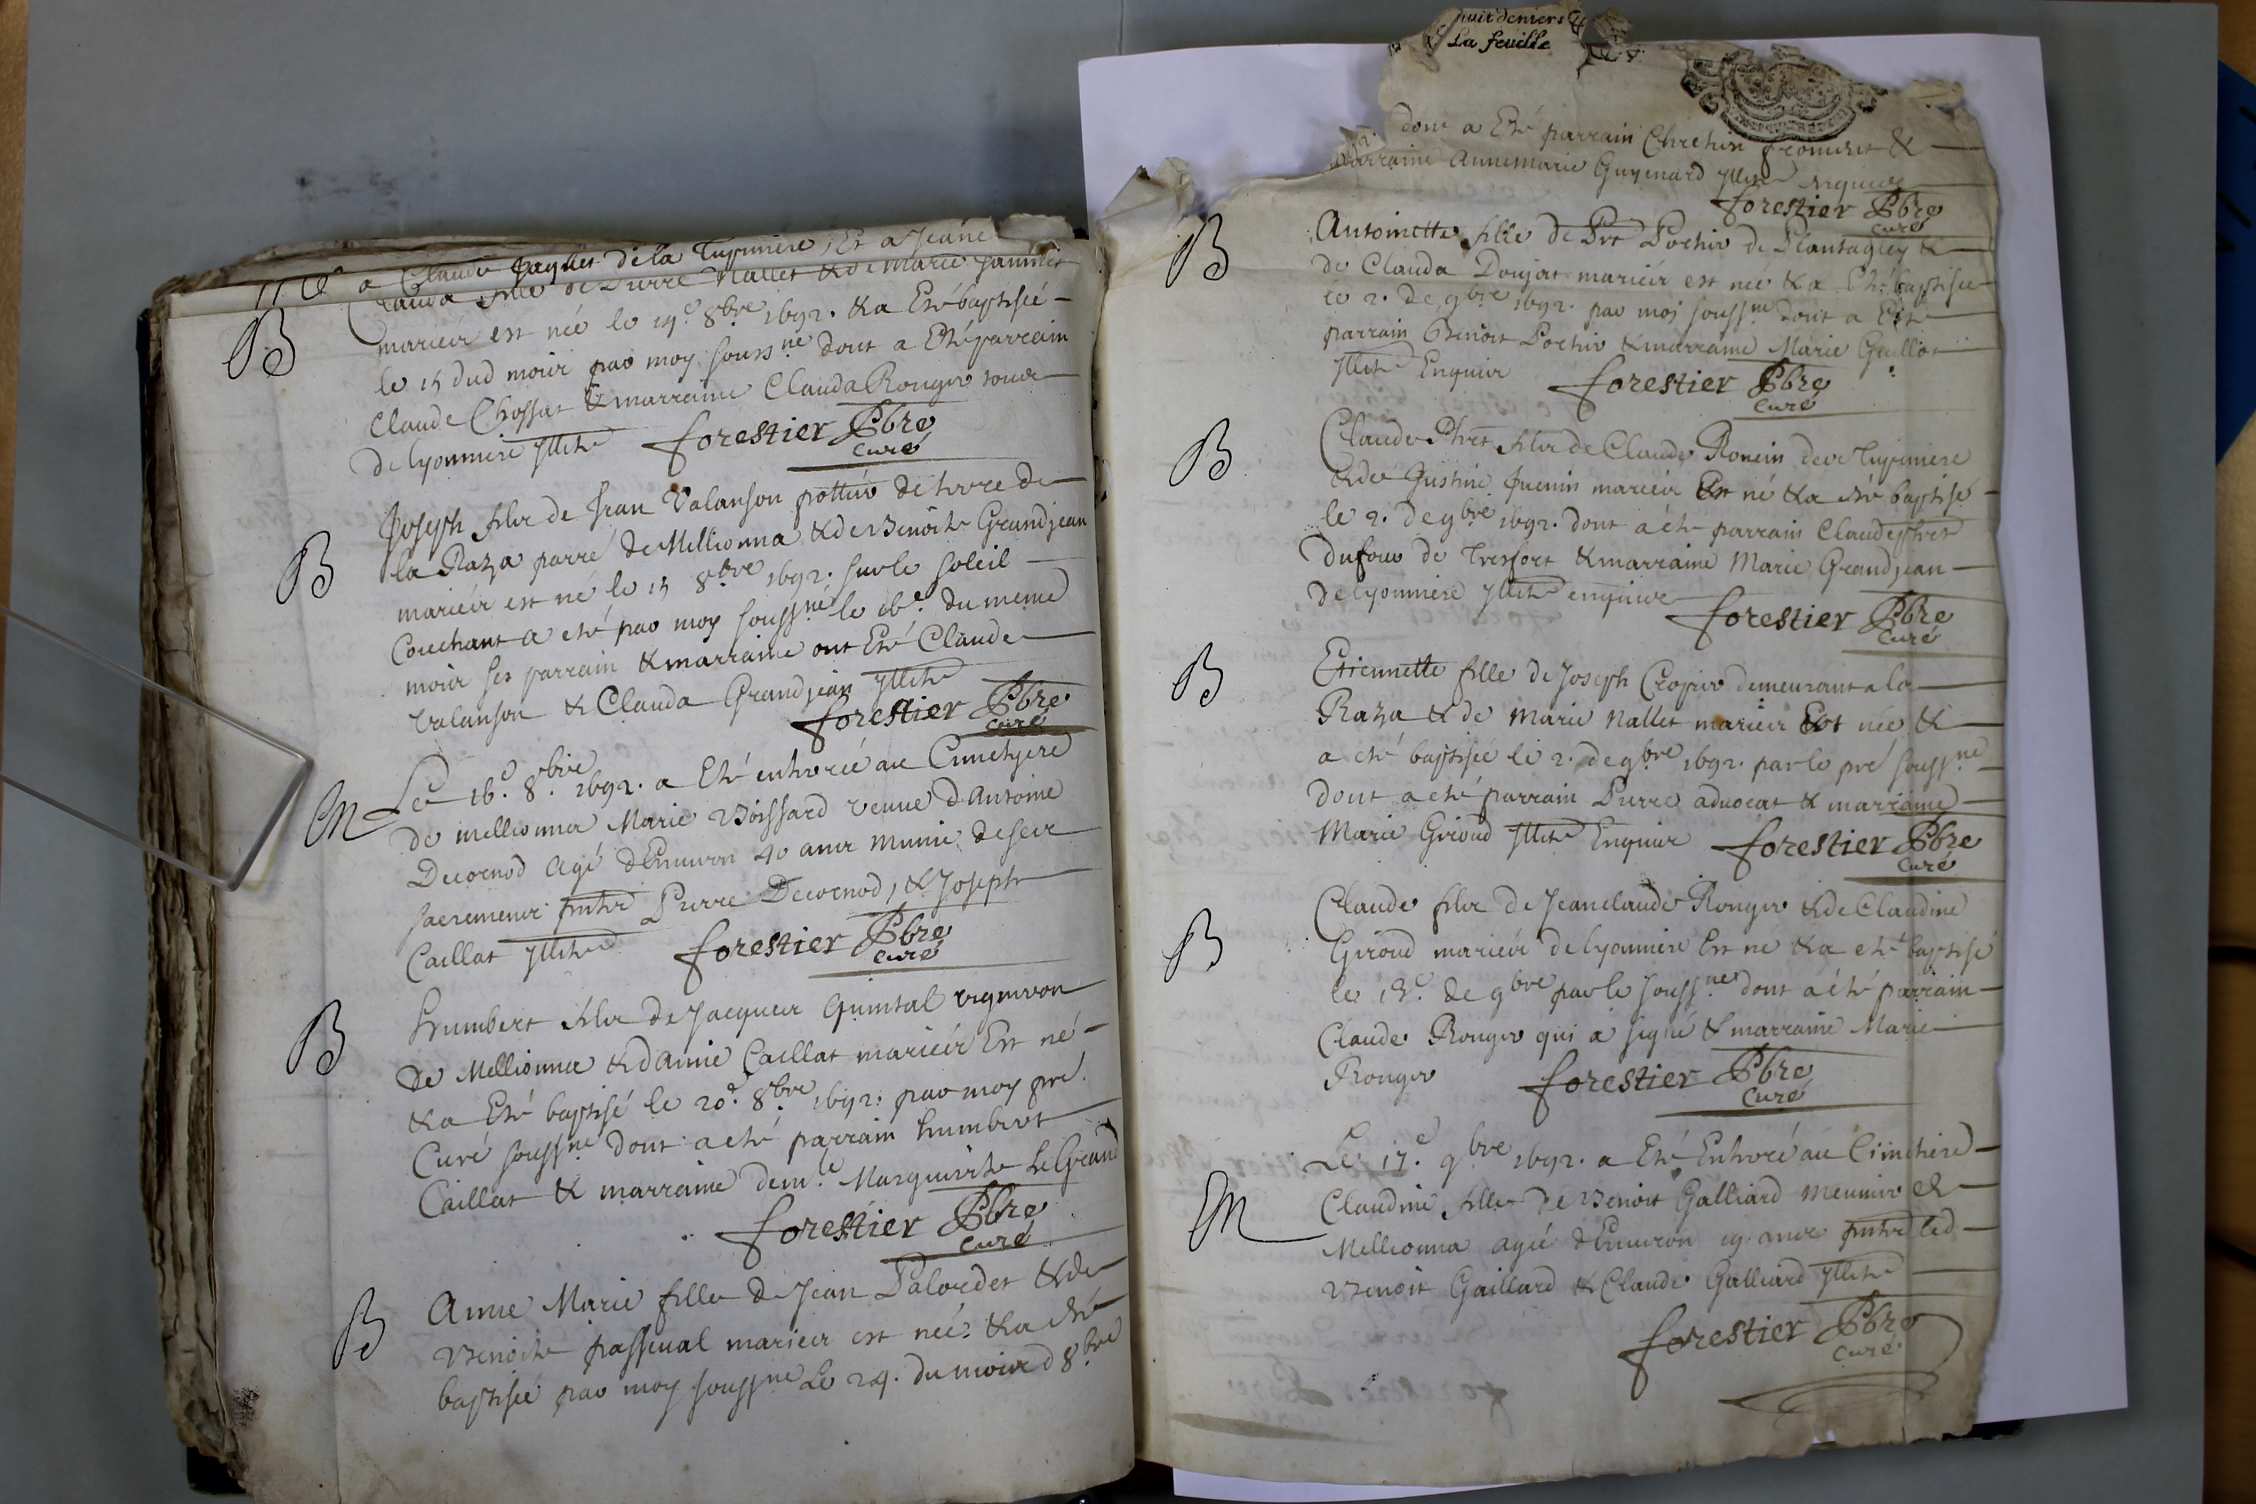 a Claude Jaquet de la Tupiniere, Et a Jeane
Clauda fille de Pierre Nallet & de Marie Jannet
B
marieir est née le 14e 8bre 1692. & a Eté baptisée
le 15 dud moir par moy souss.né dont a Eté parrain
Claude Chossat & marraine Clauda Rouger tour
de lyonniere Illité forestier Pbre
curé
B
Joseph filz de Jean Valanson pottier de terre de
la Raza parre de Mellionna & de Benoite Grandjean
marieir est né le 15 8bre 1692. sur le soleil
Couchant a eté par moy souss.né le 16e. du meme
moir ses parrain & marraine ont Eté Claude
Valanson & Clauda Grandjean Illité
forestier Pbre
curé
M
Le 16e. 8bre. 1692. a Eté enterrée au Cimetiere
de mellionna Marie Boissard veuve d'Antoine
Decornod Agé d'Environ 40 anr munie deseir
sacremenir pnter Pierre Decornod, & Joseph
Caillat Illité forestier Pbre
curé
B
Humbert filz de Jacqueir Quintal vigneron
de Mellionna & d'Anne Caillat marieir Est né
& a Eté baptisé le 20e. 8bre 1692. par moy pre.
Curé souss.né dont a eté parrain humbert
Caillat & marraine dem.le Marguerite LeGrand
forestier Pbre
curé
B
Anne Marie fille de Jean Palordet & de
Benoite passeual marieir est née & a eté
baptisée par moy souss.né Le 24. du moir d 8bre
huit deniers
La feuille
dont a Eté parrain Chretien fromerit &
marraine Annemarie Guymard Illité enquire
forestier Pbre
curé
B
Antoinette fille de Pre Pochir de Plantagley &
de Clauda Doujat marieir est née & a Eté baptisée
le 2. de 9bre 1692. par moi souss.né dont a Eté
parrain Benoit Pochir & marraine Marie Guillot
Illité Enquire forestier Pbre
curé
B
Claude Phet filz de Claude Ronein de la Tupiniere
& de Gustine Juenin marieir Est né & a eté baptisé
le 2. de 9bre 1692. dont a été parrain Claude phet
dufour de Tresfort & marraine Marie Grandjean
de lyonniere Illité enquire
forestier Pbre
curé
B
Etiennette fille de Joseph Cropier demeurant a la
Raza & de Marie Nallet marieir Est née &
a eté baptisée le 2. de 9bre 1692. par le pré souss.né
dont a eté parrain Pierre aduocat & marraine
Marie Giroud Illité Enquire forestier Pbre
curé
B
Claude filz de Jeanclaude Rouger & de Claudine
Giroud marieir de lyonniere Est né & a eté baptisé
le 13e. de 9bre par le souss.né dont a été parrain
Claude Rouger qui a signé & marraine Marie
Rouger forestier Pbre
curé
M
Le 17e. 9bre 1692. a Eté Enterré au Cimetiere
Claudine fille de Benoit Galliard meunier &
Mellionna agée d'Environ 19 anr pnter led
Benoit Gaillard & Claude Galliard Illité
forestier Pbre
curé